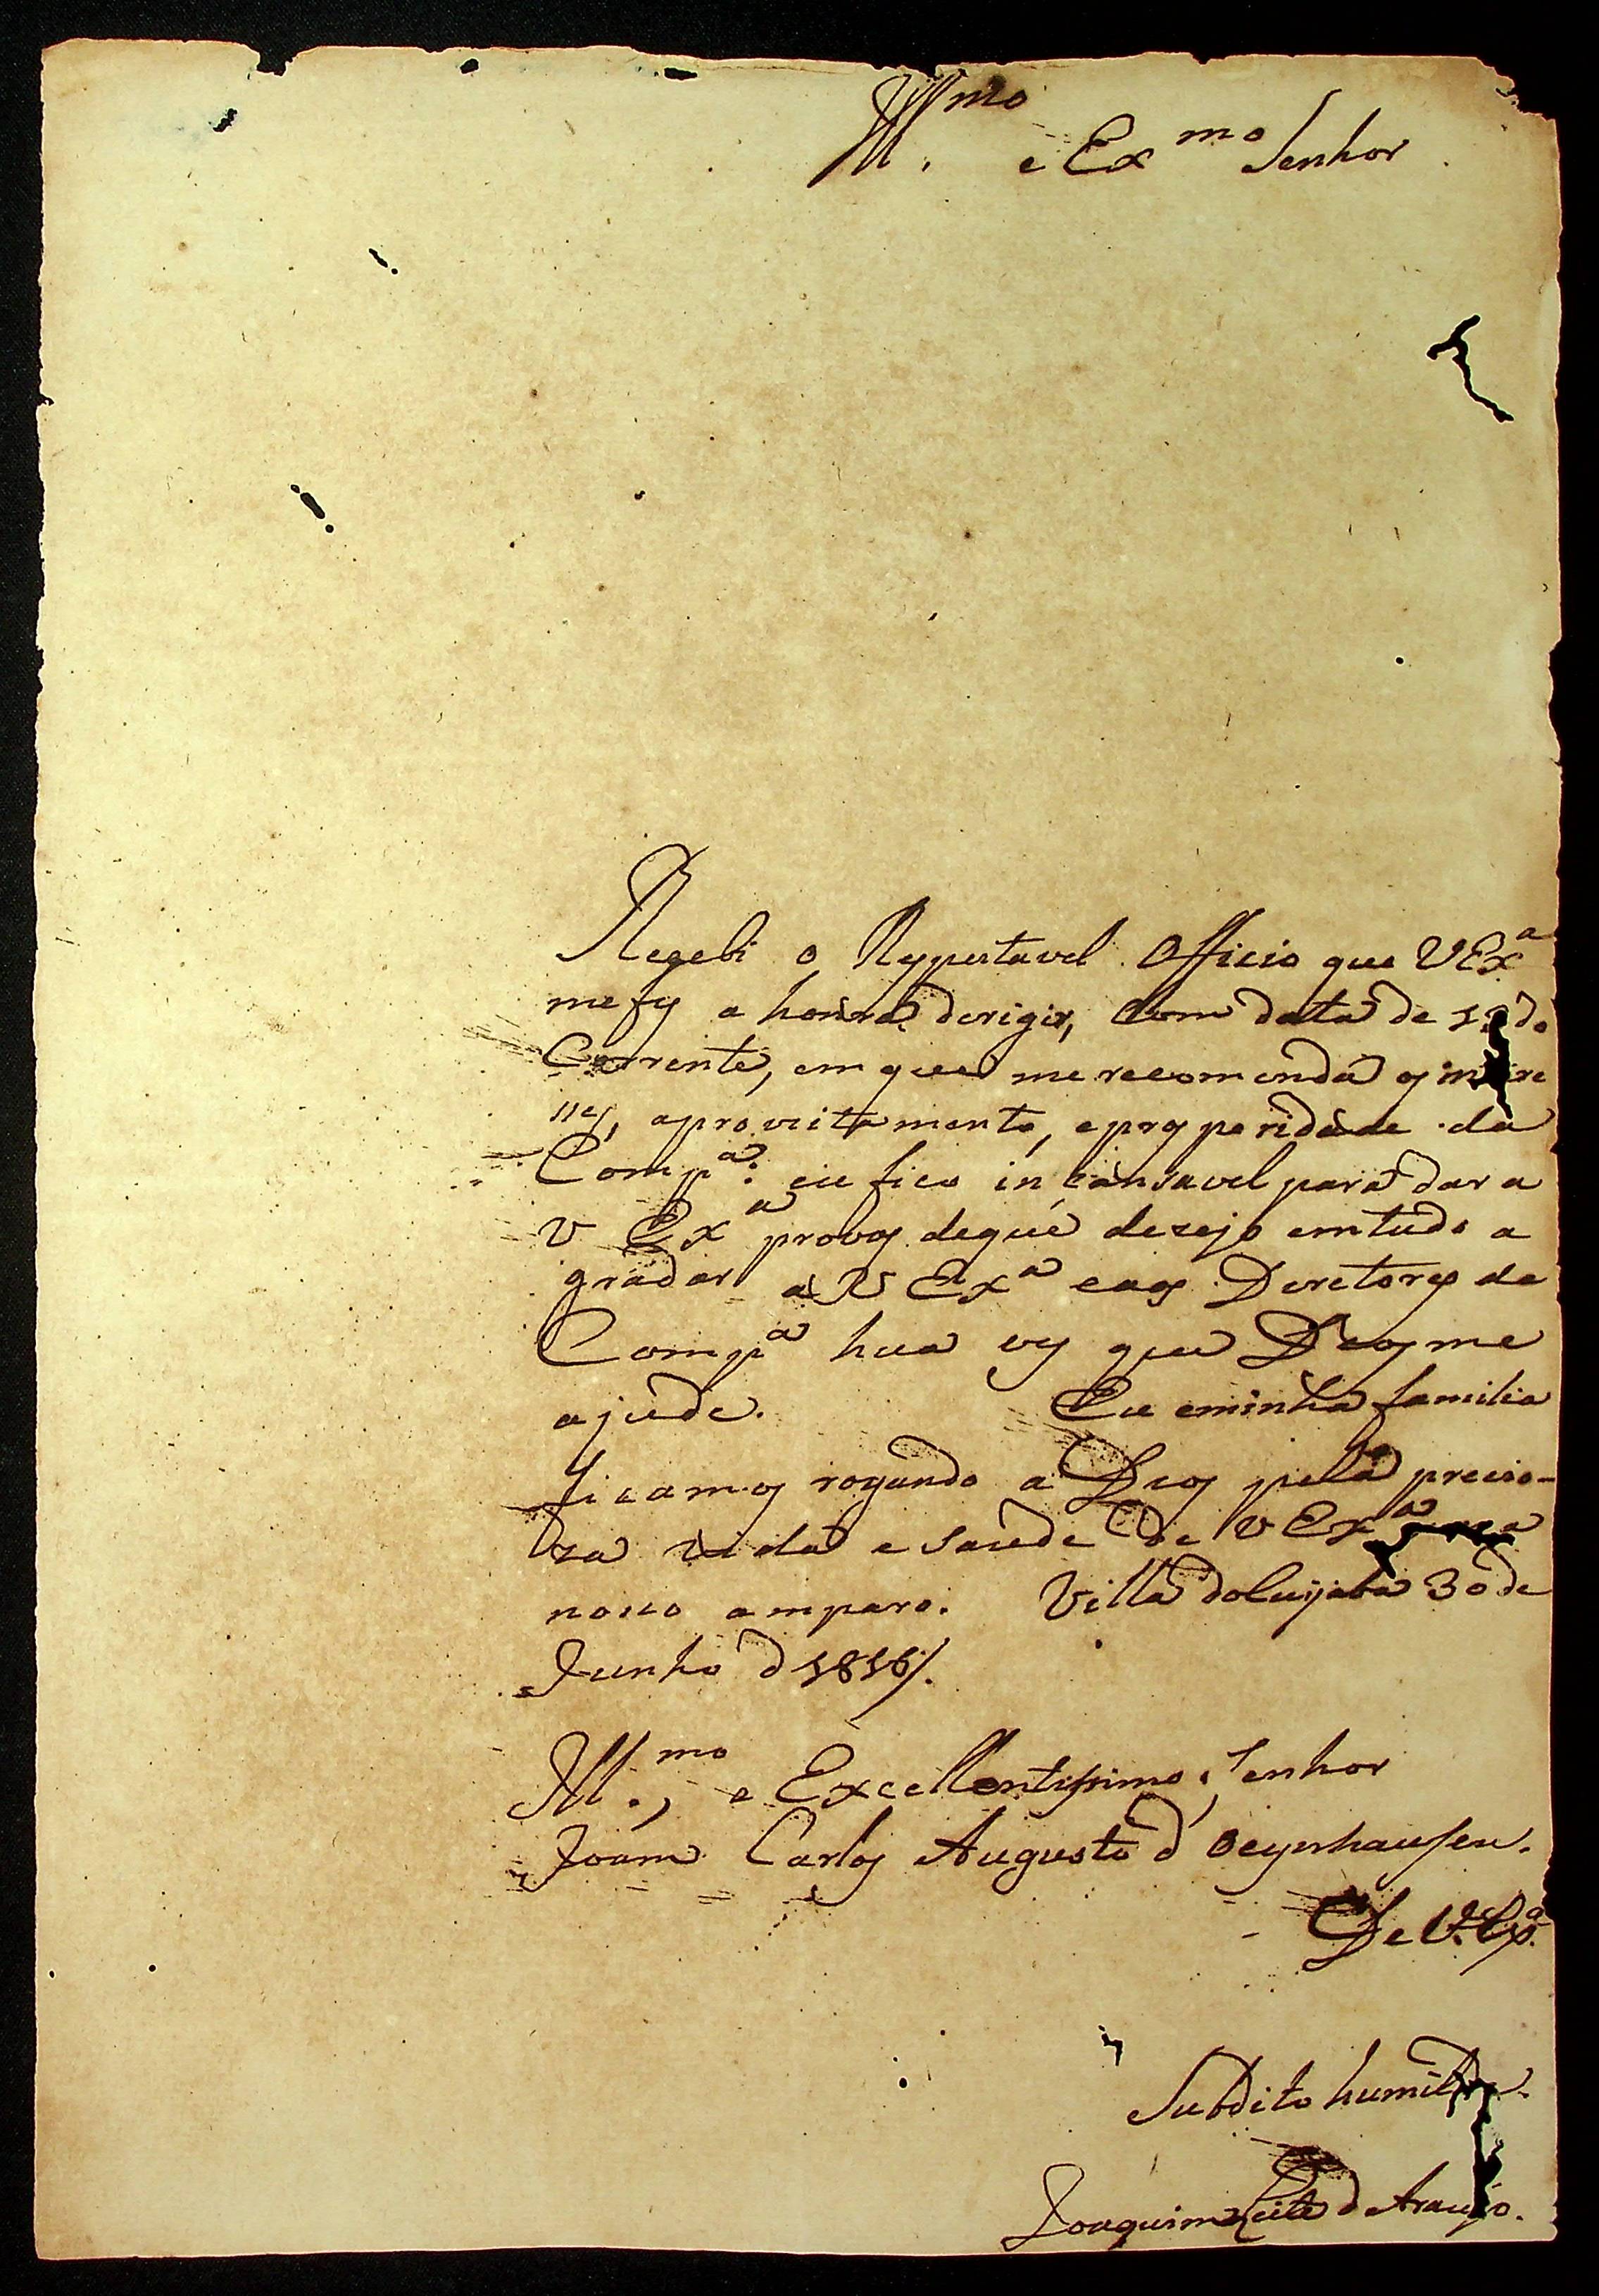 Ill.mo e Exmo Senhor
Regebi o Respeitavel Officio que VExa
mefes a honra derigir, com data de do
Corrente, em que me recomenda os intere
sses, aproveitamento, eprosperidade da
Compa. eu fico incansavel para dar a
V Exa provas deque desejo emtudo a
gradar a V Exa eaos Deretores da
Compa hua ves que Deos me
ajude. Eu eminha familia
ficamos rogando a Deos pella precio-
za vida esaude de V Exa para
nosso amparo. Villa doCuyaba 30 de
Junho d 1818/.
Ill.mo, e Excellentissimo Senhor
Joam Carlos Augusto d' Oeynhausen.
De V. Exa.
Subdito humilde.
Joaquim Leite d Araujo.